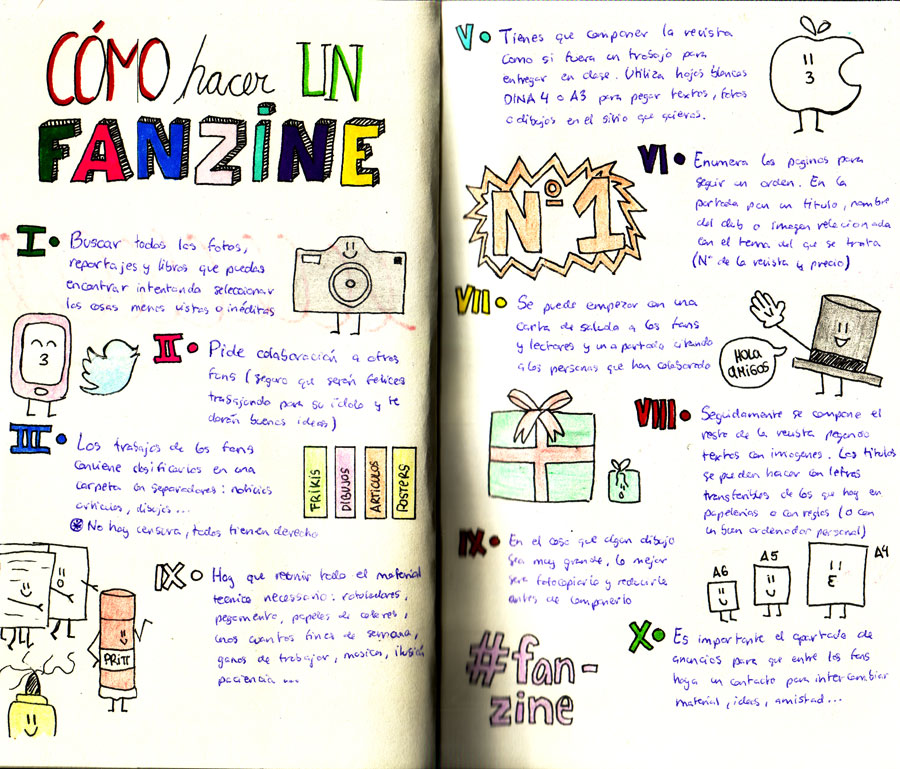 CÓMO hacer UN
FANZINE
I. Buscar todas las fotos,
reportajes y libros que puedas
encontrar intentando seleccionar
las cosas menos vistas o inéditas
II. Pide colaboración a otros
fans (seguro que serán felices
trabajando para su ídolo y te
darán buenas ideas)
III. Los trabajos de los fans
conviene dosificarlos en una
carpeta con separadores: noticias
artículos, dibujos...
* No hay censura, todos tienen derecho
FRIKIS
DIBUJOS
ARTICULOS
POSTERS
IX. Hay que reunir todo el material
tecnico necesario: rotuladores,
pegamento, papeles de colores,
unos cuantos fines de semana,
ganas de trabajar, musica, ilusión
paciencia ...
PRITT
V. Tienes que componer la revista
como si fuera un trabajo para
entregar en clase. Utiliza hojas blancas
DINA 4 o A3 para pegar textos, fotos
o dibujos en el sitio que quieras.
VI. Enumera las paginas para
seguir un orden. En la
portada pon un título, nombre
del club o imagen relacionada
con el tema del que se trata
(Nº de la revista y precio)
Nº 1
VII. Se puede empezar con una
carta de saludo a los fans
y lectores y una portada citando
a las personas que han colaborado
HOLA
AMIGOS
VIII. Seguidamente se compone el
resto de la revista pegando
textos con imagenes. Los titulos
se pueden hacer con letras
transferibles de las que hay en
papelerías o con reglas (o con
un buen ordenador personal)
IX. En el caso que algun dibujo
sea muy grande, lo mejor
sera fotocopiarlo y reducirlo
antes de componerlo
A6
A5
A4
X. Es importante el apartado de
anuncios para que entre los fans
haya un contacto para intercambiar
material, ideas, amistad...
#fan-
zine